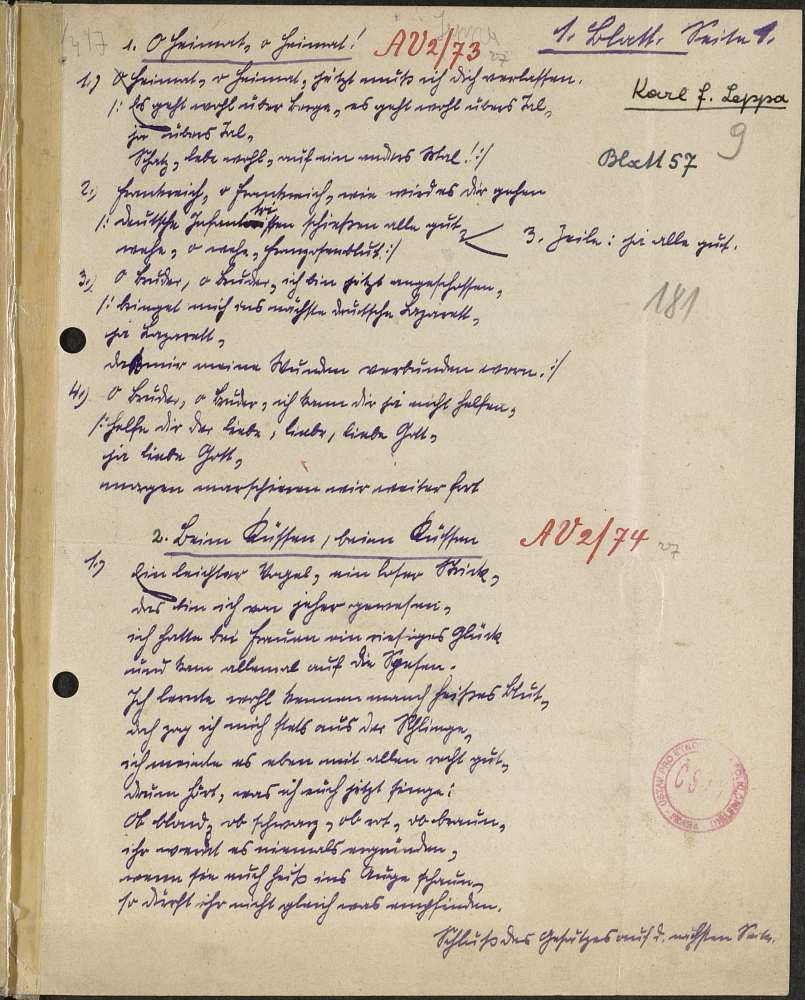 1. O Heimat, o Heimat!
AV2/73
1. Blatt. Seite 1.
1.) O Heimat, o Heimat, jetzt muß ich dich verlassen.
Karl F. Leppa
/: Es geht wohl über Berge, es geht wohl übers Tal,
9
ja übers Tal,
Schatz, lebe wohl, auf ein anders Mal! :/
Blatt 57
2.) Frankreich, o Frankreich, wie wird es dir gehen
/: deutsche Infantristen schießen alle gut,
3. Zeile: ja alle gut.
wehe, o wehe, Franzosenblut :/
3.) O Bruder, o Bruder, ich bin jetzt angeschossen,
181
/: bringet mich ins nächste deutsche Lazarett,
ja Lazarett,
daß mir meine Wunden verbunden worn. :/
4.) O Bruder, o Bruder, ich kann dir ja nicht helfen,
/: helfe dir der liebe, liebe, liebe Gott,
ja liebe Gott,
morgen marschieren wir weiter fort
2. Beim Küssen, beim Küssen
AV2/74
1.) Ein leichter Vogel, ein loser Strick,
das bin ich von jeher gewesen,
ich hatte bei Frauen ein riesiges Glück
und kam allemal auf die Spesen.
Ich lernte wohl kennen manch heißes Blut,
doch zog ich mich stets aus der Schlinge,
ich meinte es eben mit allen recht gut,
drum hört, was ich euch jetzt singe:
Ob blond, ob schwarz, ob rot, ob braun,
ihr werdet es niemals ergründen,
wenn sie euch heiß ins Auge schaun,
so dürft ihr nicht gleich was empfinden.
Schluß des Gesätzes auf d. nächsten Seite.